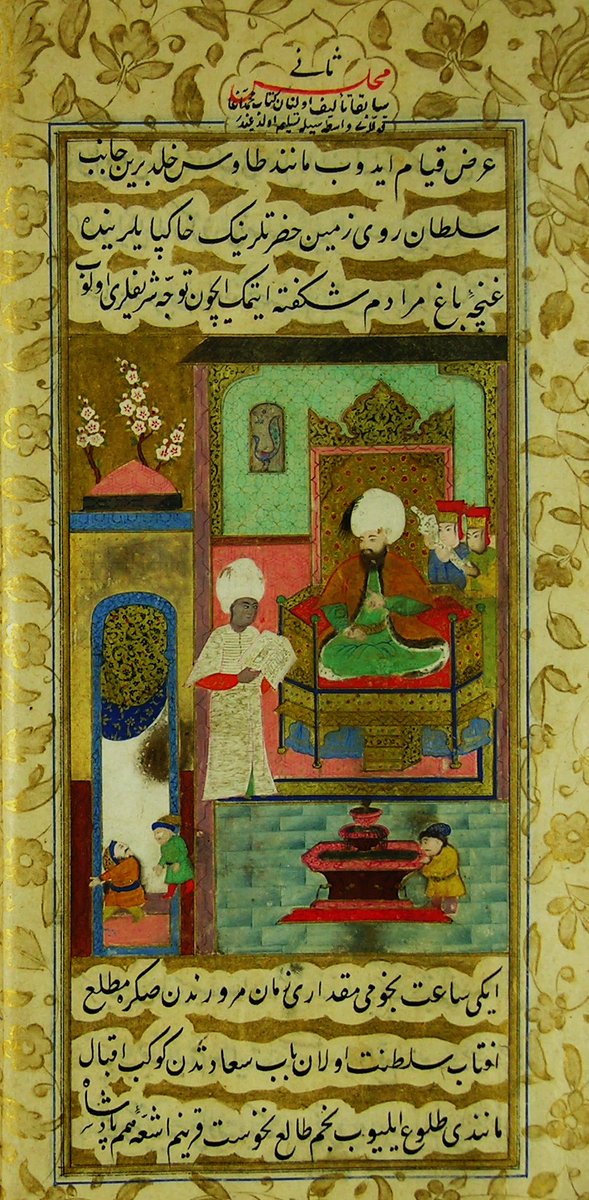 مجلس ثانی
سابقا تألیف اولنان کتاب
واسطه سیله تسلیم اولندیغیدر
عرض قیام ایدوب مانند طاوس خلد برین جانب
سلطان روی زمین حضرتلرینك خاکپایلرینده
غنچهٔ باغ مرادم شکفته ایتمك ایچون توجّه شریفلری اولوب
ایکی ساعت نجومی مقداری زمان مرورندن صکره مطلع
افتاب سلطنت اولان باب سعادتدن کوکب اقبال
مانندی طلوع ایلیوب نجم طالع نحوست قرینم اشعّهٔ